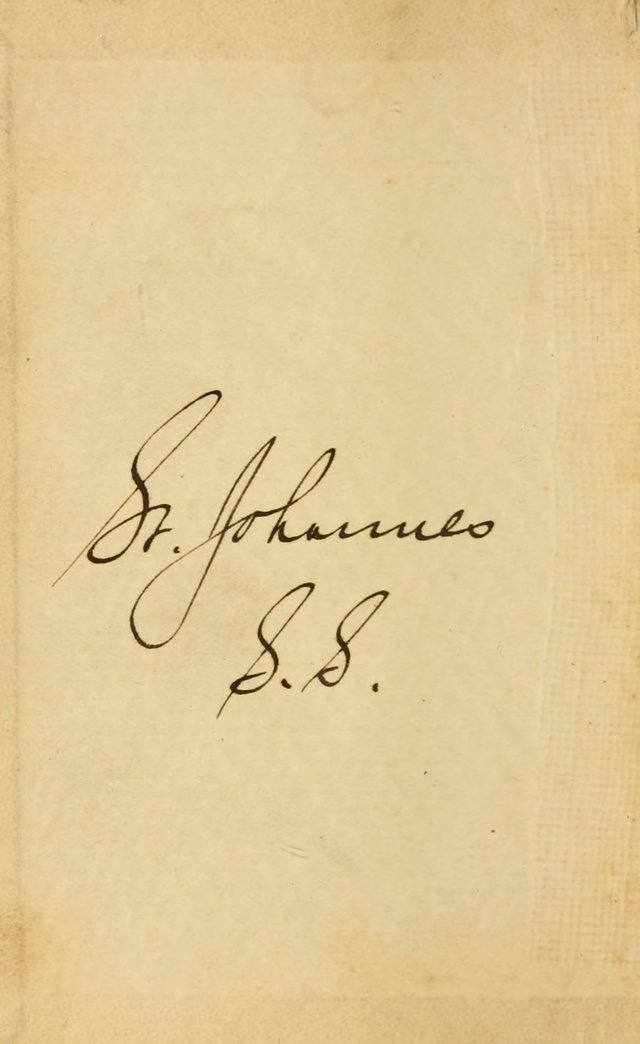 St. Johannes
S. S.